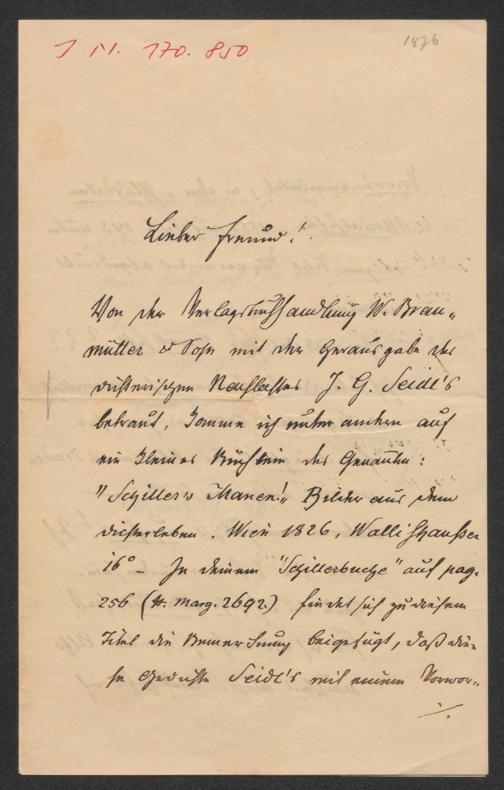 I. N. 170.850
1876
Lieber Freund!
Von der Verlagsbuchhandlung W. Brau-
müller & Sohn mit der Herausgabe des
dichterischen Nachlasses J. G. Seidl's
betraut, komme ich unter andern auf
ein kleines Büchlein des Genannten:
"Schiller's Manen!" Bilder aus dem
Dichterleben. Wien 1826, Wallishausser
16° – In deinem "Schillerbuche" auf pag.
256 (Marg. 2692.) findet sich zu diesem
Titel die Bemerkung beigefügt, daß die-
se Gedichte Seidl's mit einem Vorwor-
./.